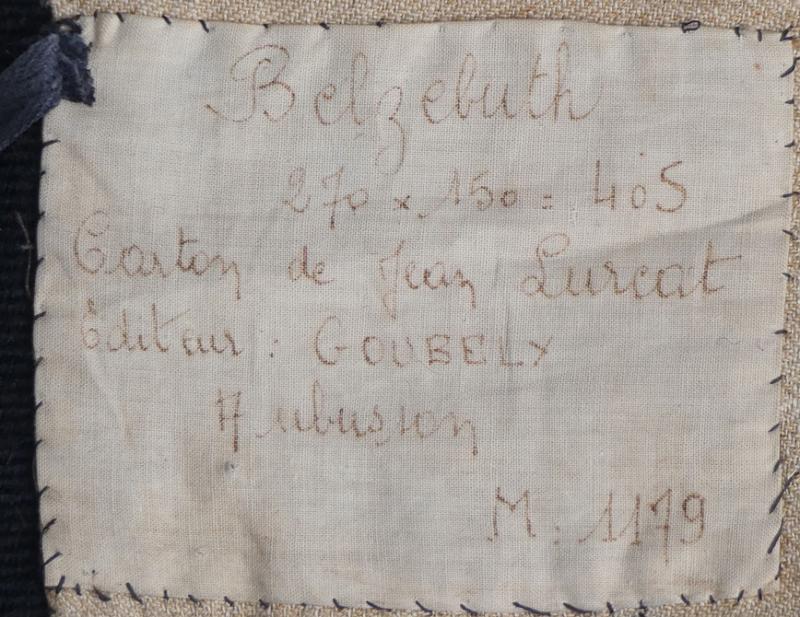 Belzebuth
270 x 150 = 405
Carton de Jean Lurcat
Editeur : GOUBELY
Aubusson
M. 1179